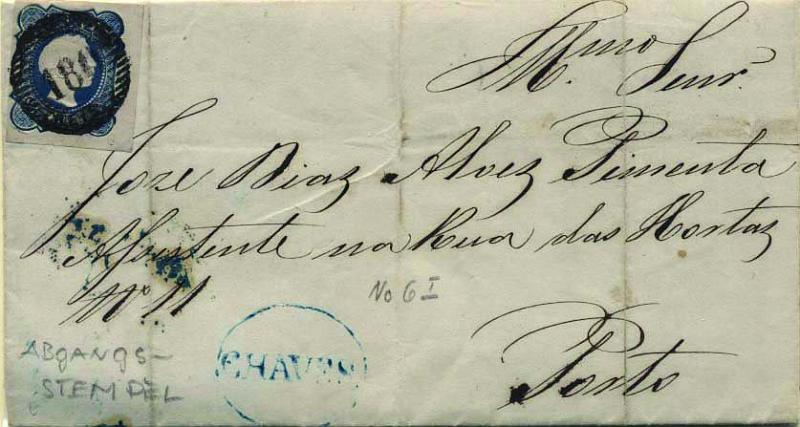 Illmo
Senr.
Joze Diaz Alvez Pimenta
na Rua das Hortaz
No. 11
No 6 I
Porto
ABGANGS-
STEMPEL
CHAVES